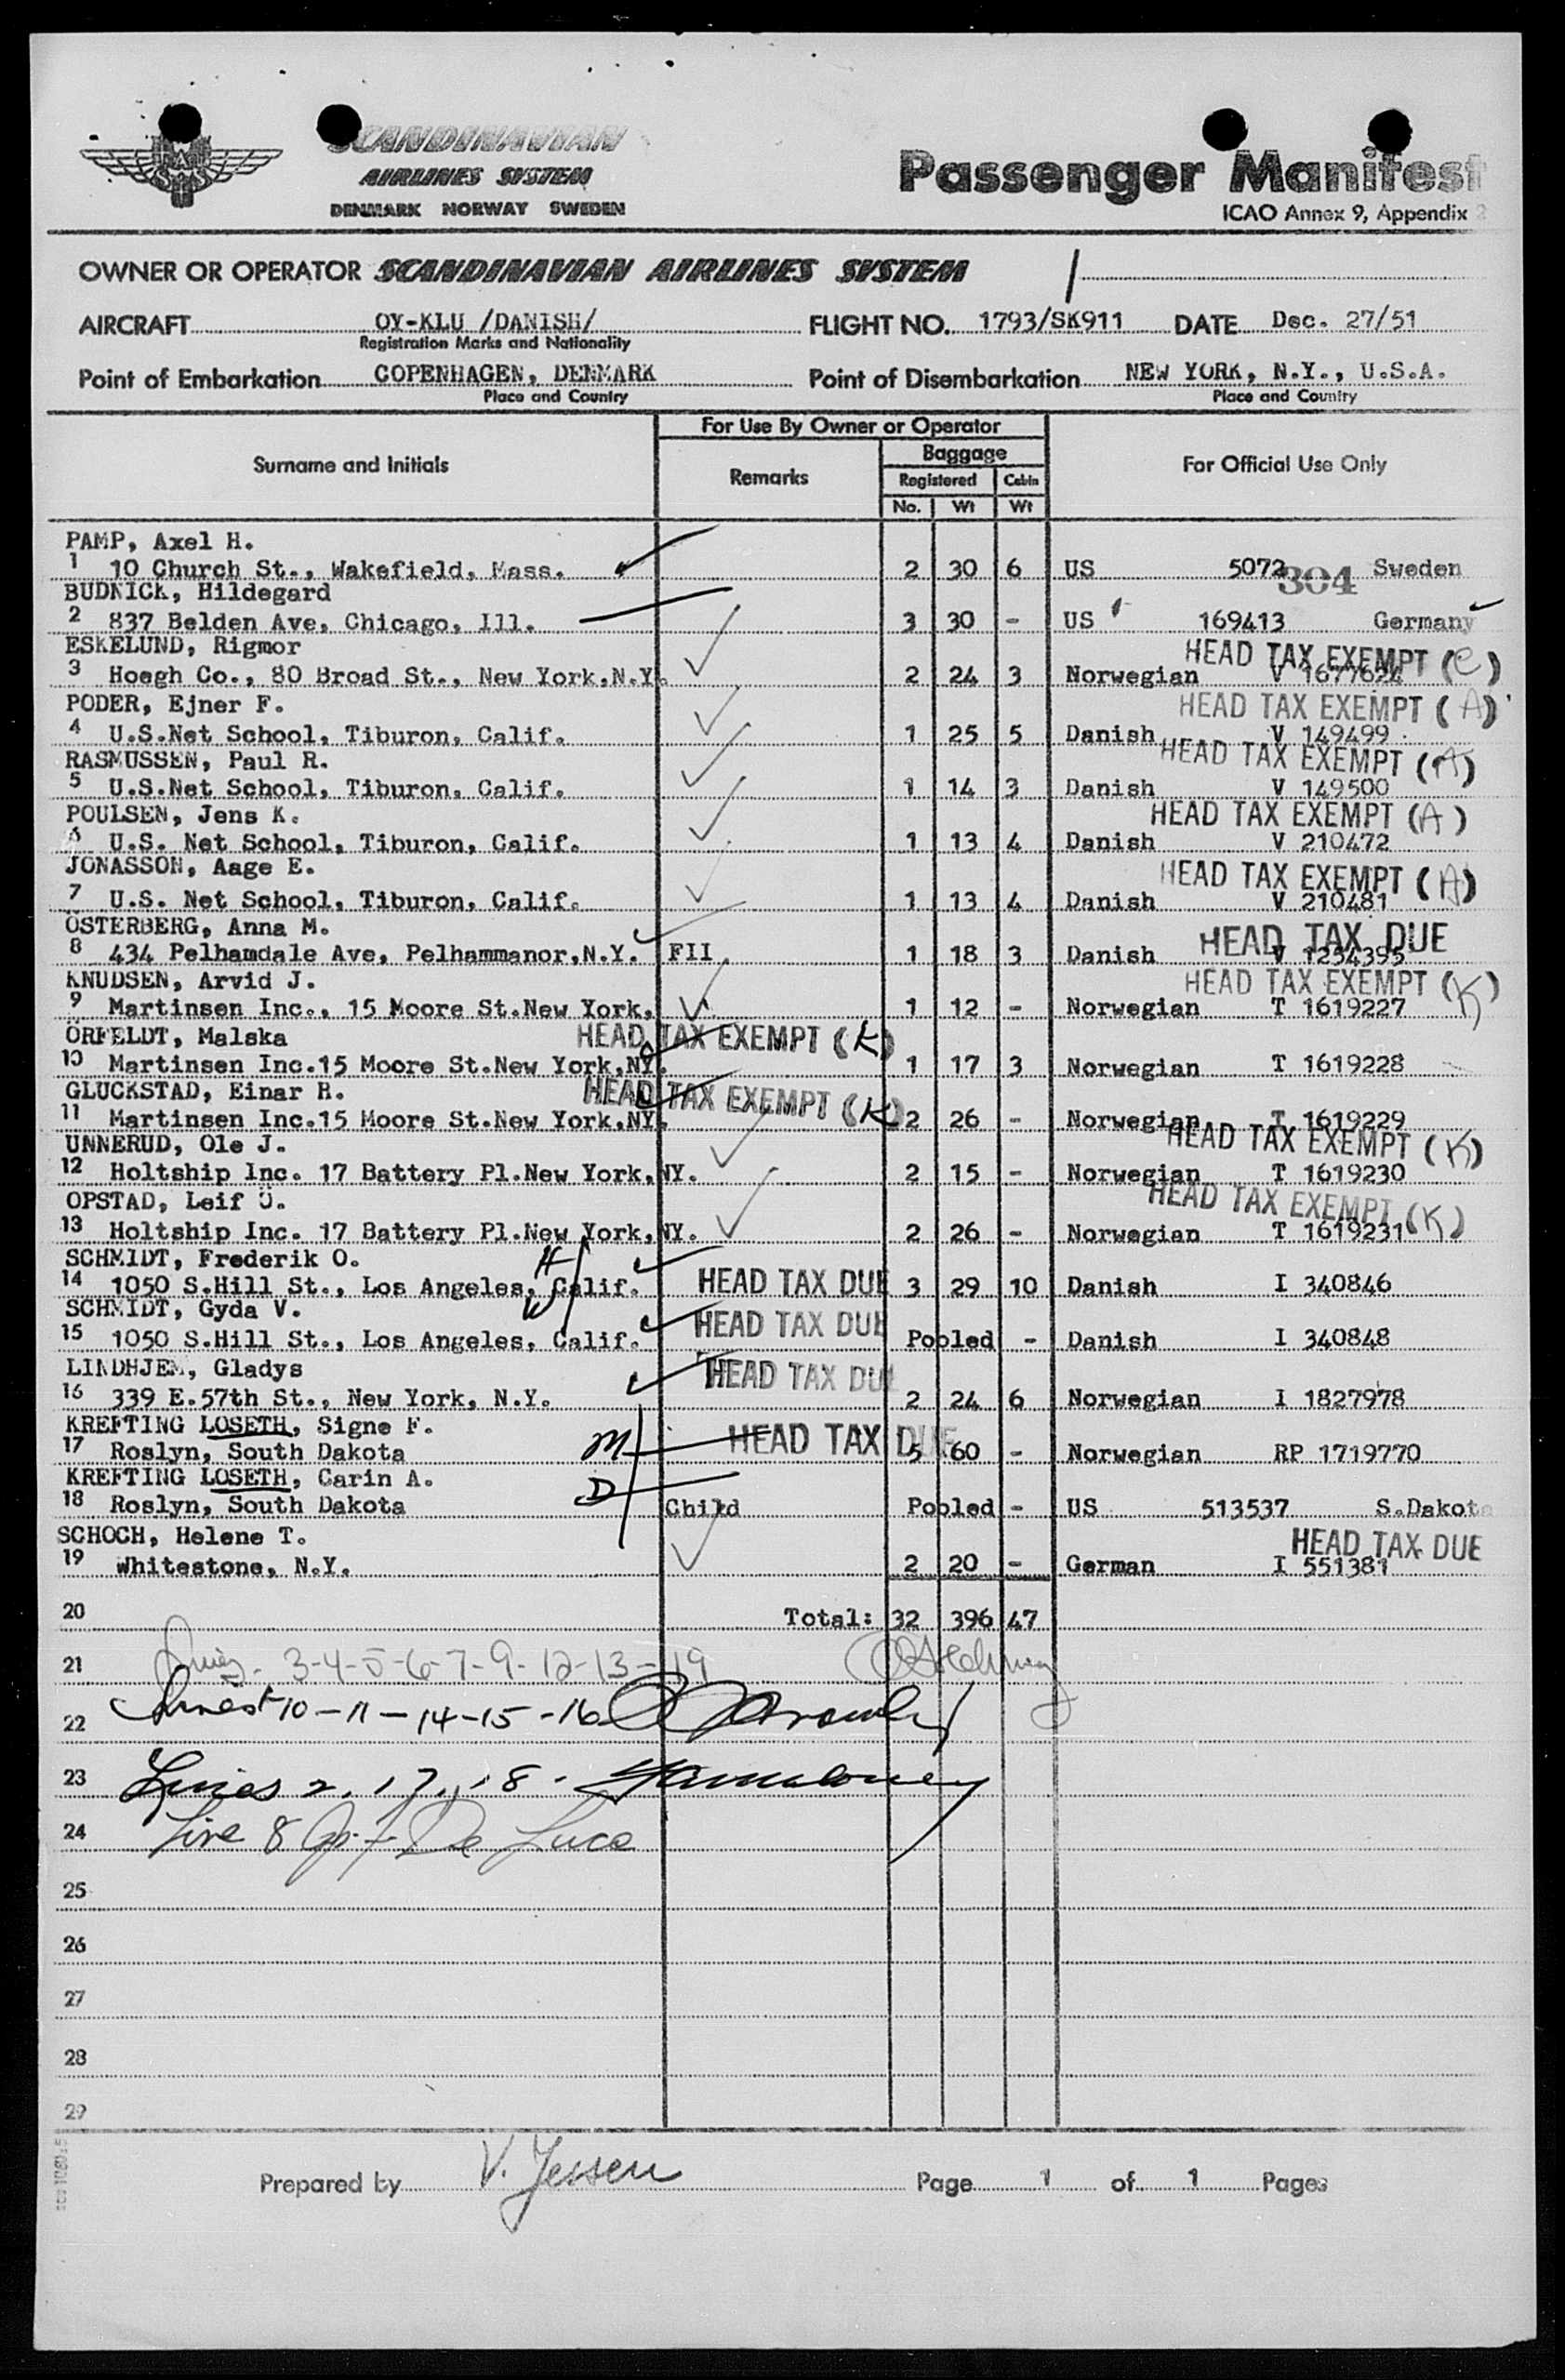 SCANDINAVIAN
AIRLINES SYSTEM
DENMARK NORWAY SWEDEN
Passenger Manifest
ICAO Annex 9, Appendix 2
OWNER OR OPERATOR SCANDINAVIAN AIRLINES SYSTEM
AIRCRAFT OY-KLU /DANISH/ FLIGHT NO. 1793/SK911 DATE Dec. 27/51
Registration Marks and Nationality
Point of Embarkation COPENHAGEN, DENMARK Point of Disembarkation NEW YORK, N.Y., U.S.A.
Place and Country Place and Country
For Use By Owner or Operator
Surname and Initials Remarks Baggage For Official Use Only
Registered Cabin
No. Wt Wt
PAMP, Axel H.
1 10 Church St., Wakefield, Mass. 2 30 6 US 5072 Sweden
304
BUDNICK, Hildegard
2 837 Belden Ave, Chicago, Ill. 3 30 - US 169413 Germany
ESKELUND, Rigmor HEAD TAX EXEMPT (C)
3 Hoegh Co., 80 Broad St., New York,N.Y. 2 24 3 Norwegian V 1677624
PODER, Ejner F. HEAD TAX EXEMPT (A)
4 U.S.Net School, Tiburon, Calif. 1 25 5 Danish V 149499
RASMUSSEN, Paul R. HEAD TAX EXEMPT (A)
5 U.S.Net School, Tiburon, Calif. 1 14 3 Danish V 149500
POULSEN, Jens K. HEAD TAX EXEMPT (A)
6 U.S. Net School, Tiburon, Calif. 1 13 4 Danish V 210472
JONASSON, Aage E. HEAD TAX EXEMPT (A)
7 U.S. Net School, Tiburon, Calif. 1 13 4 Danish V 210481
ÖSTERBERG, Anna M. HEAD TAX DUE
8 434 Pelhamdale Ave, Pelhammanor,N.Y. FII. 1 18 3 Danish V 1254395
KNUDSEN, Arvid J. HEAD TAX EXEMPT (K)
9 Martinsen Inc., 15 Moore St.New York, 1 12 - Norwegian T 1619227
ÖRFELDT, Malska HEAD TAX EXEMPT (K)
10 Martinsen Inc.15 Moore St.New York,NY. 1 17 3 Norwegian T 1619228
GLUCKSTAD, Einar H. HEAD TAX EXEMPT (K)
11 Martinsen Inc.15 Moore St.New York,NY. 2 26 - Norwegian T 1619229
UNNERUD, Ole J. HEAD TAX EXEMPT (K)
12 Holtship Inc. 17 Battery Pl.New York,NY. 2 15 - Norwegian T 1619230
OPSTAD, Leif Ü. HEAD TAX EXEMPT (K)
13 Holtship Inc. 17 Battery Pl.New York,NY. 2 26 - Norwegian T 1619231
SCHMIDT, Frederik O. H
14 1050 S.Hill St., Los Angeles, Calif. HEAD TAX DUE 3 29 10 Danish I 340846
SCHMIDT, Gyda V. W HEAD TAX DUE
15 1050 S.Hill St., Los Angeles, Calif. Pooled - Danish I 340848
LINDHJEM, Gladys HEAD TAX DUE
16 339 E.57th St., New York, N.Y. 2 24 6 Norwegian I 1827978
KREFTING LOSETH, Signe F. HEAD TAX DUE
17 Roslyn, South Dakota M 5 60 - Norwegian RP 1719770
KREFTING LOSETH, Carin A. D
18 Roslyn, South Dakota Child Pooled - US 513537 S.Dakota
SCHOCH, Helene T. HEAD TAX DUE
19 Whitestone, N.Y. 2 20 - German I 551381
20 Total: 32 396 47
21 3-4-5-6-7-9-12-13-19
22 10-11-14-15-16
23 Lines 2, 17, 18.
24 Line 8 De Luca
25
26
27
28
29
Prepared by V. Jessen Page 1 of 1 Pages